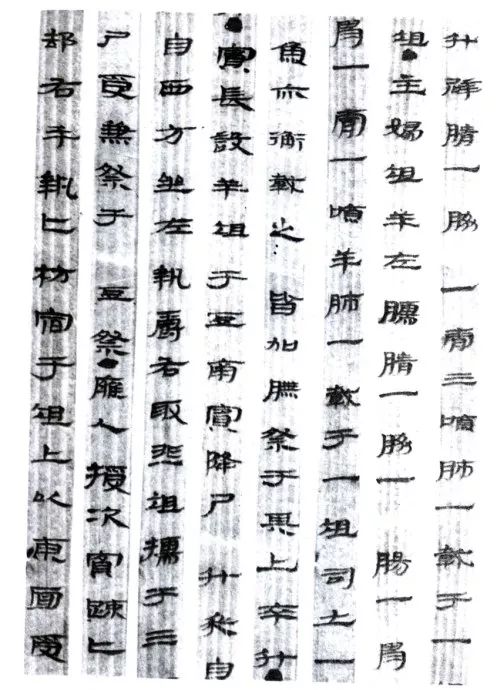 升辟腈一脇一膚三嚌肺一載于一
俎●主婦俎羊左臑腈一脇一腸一胃
胃一膚一嚌羊肺一載于一俎司士一
魚亦衡載之皆加膴祭于其上卒升
●賓長設羊俎于豆南賓降尸升筵自
自西方坐左執爵右取菹擩于三
尸受兼祭于豆祭●雍人授次賓疏匕
卻右手執匕枋宿于俎上以東面受